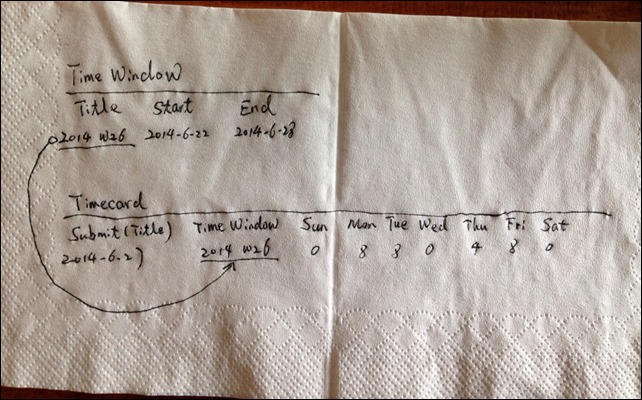 Time Window
Title Start End
2014 W26 2014-6-22 2014-6-28
Timecard
Submit(Title) Time Window Sun Mon Tue Wed Thu Fri Sat
2014-6-27 2014 W26 0 8 8 0 4 8 0